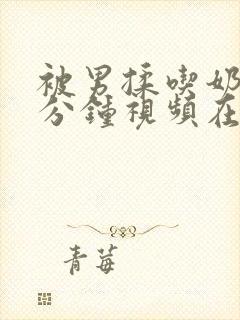 被男揉喫奶
分鐘視頻在
青莓